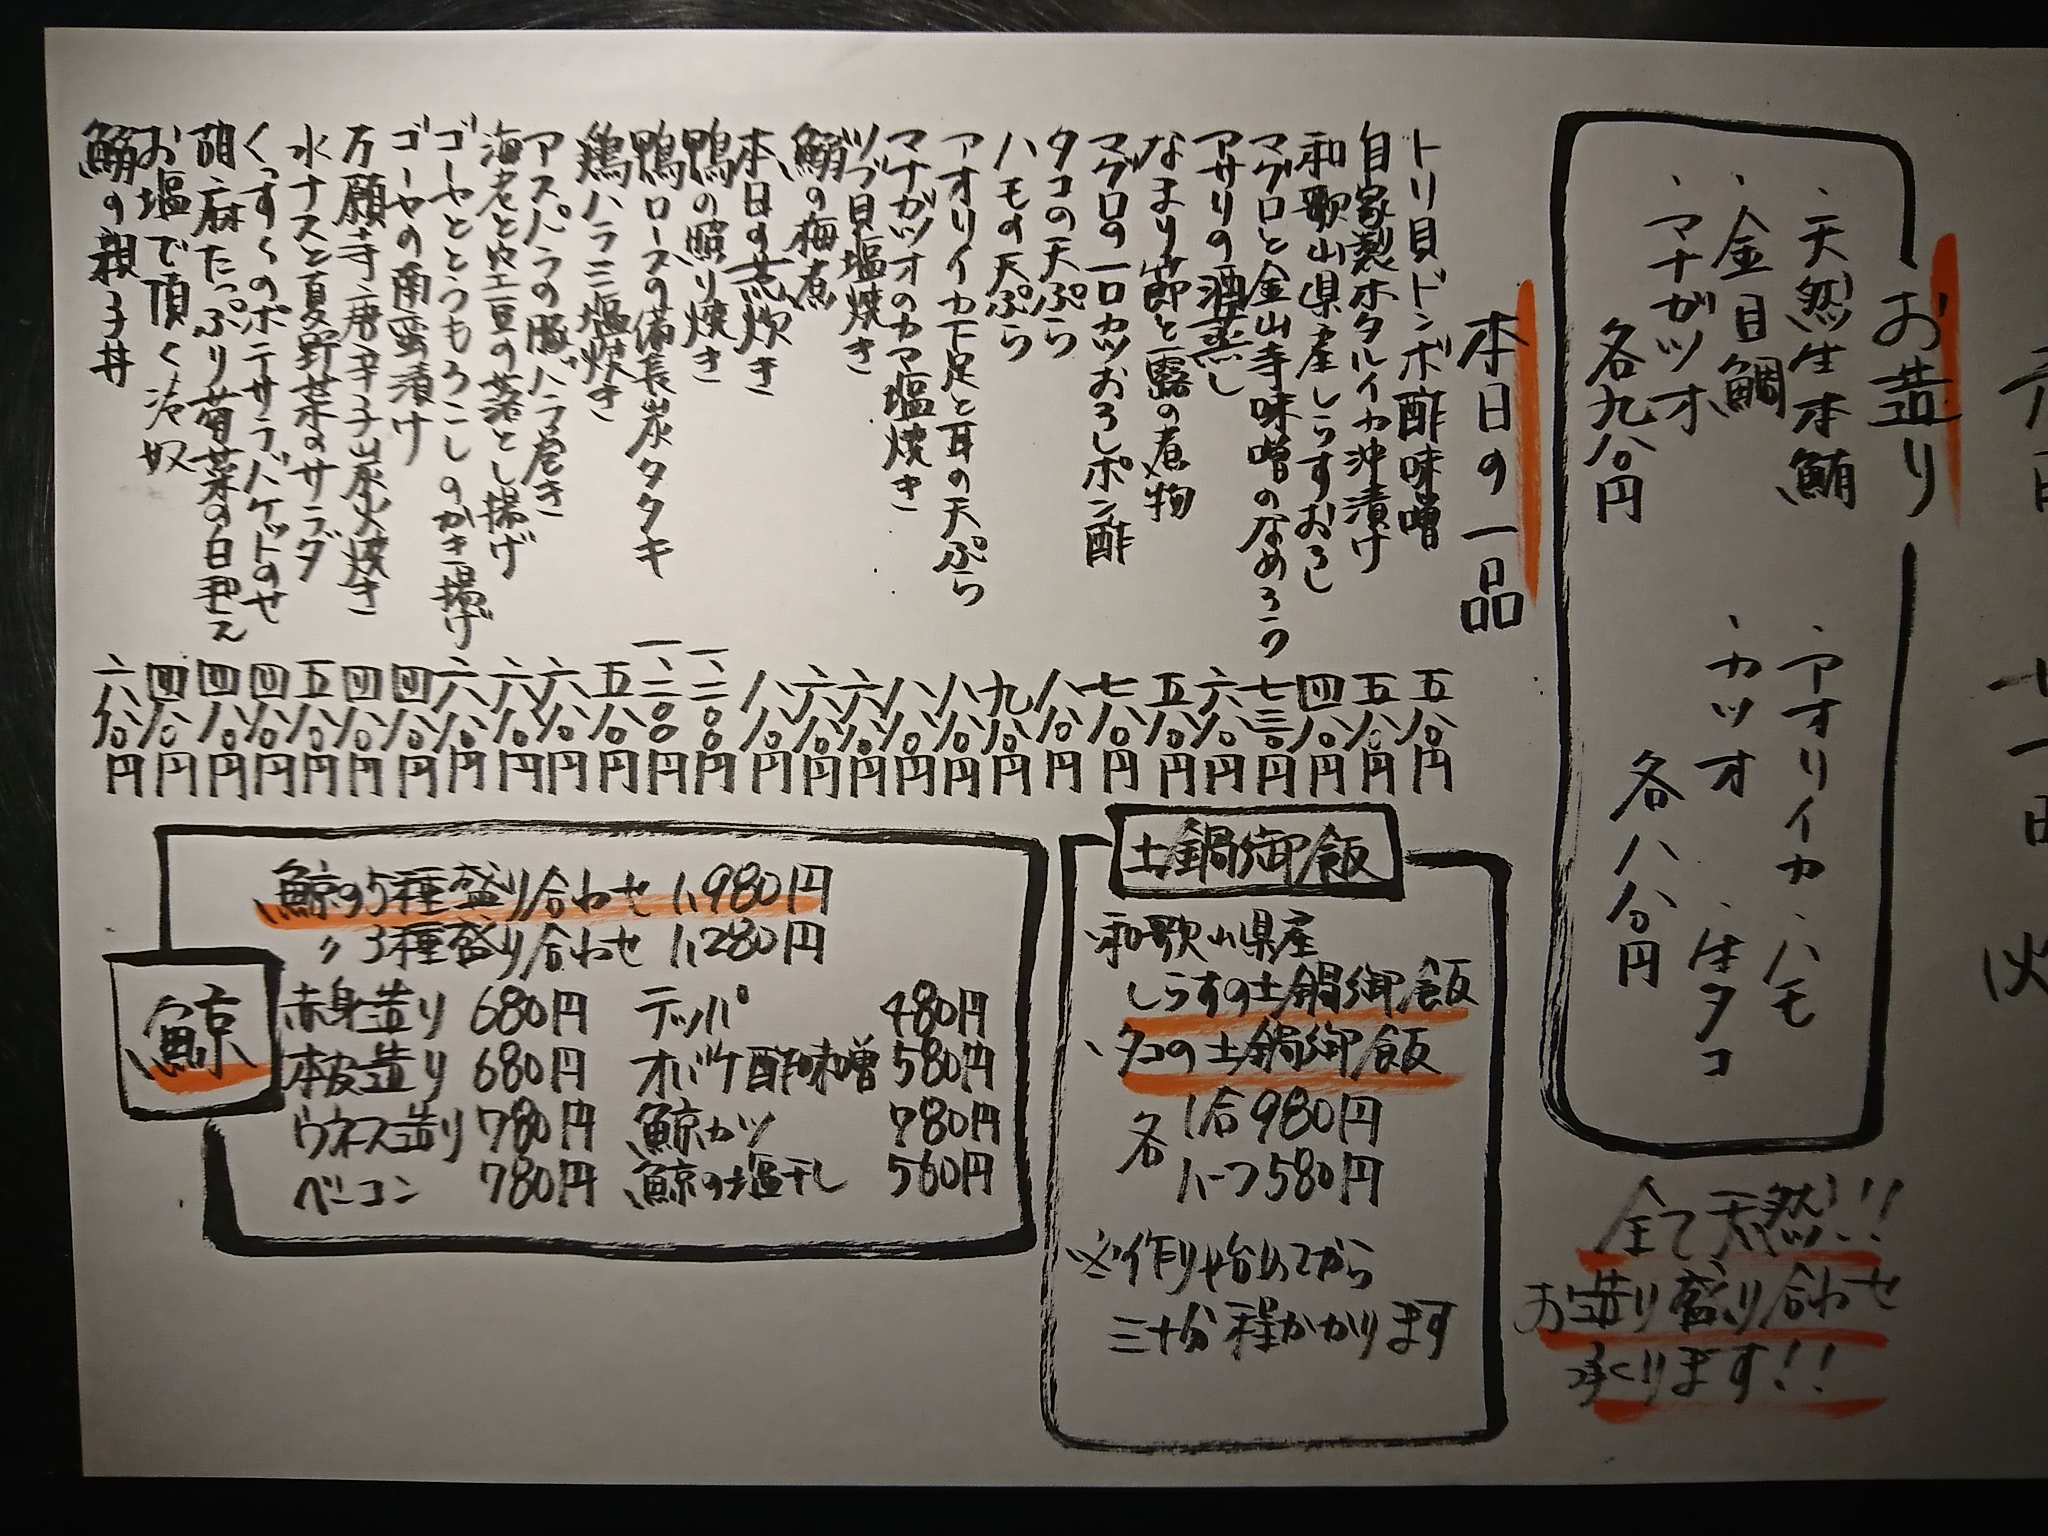 お造り
・天然生本鮪
・金目鯛
・マナガツオ
各九八〇円
・アオリイカ・ハモ
・カツオ・生タコ
各八八〇円
全て天然!!
お造り盛り合わせ
承ります!!
本日の一品
トリ貝ドンボ酢味噌 五八〇円
自家製ホタルイカ沖漬け 五八〇円
和歌山県産しらすおろし 四八〇円
マグロと金山寺味噌のなめろう 七三〇円
アサリの酒蒸し 六八〇円
なまり節と蕗の煮物 五八〇円
マグロの一口カツおろしポン酢 七八〇円
タコの天ぷら 八八〇円
ハモの天ぷら 九八〇円
アオリイカ下足と耳の天ぷら 八八〇円
マナガツオのカマ塩焼き 八八〇円
ツブ貝塩焼き 六八〇円
鰯の梅煮 六八〇円
本日の煮炊き 八八〇円
鴨の照り焼き 一、二〇〇円
鴨ロースの備長炭タタキ 一、二〇〇円
鶏ハラミ塩焼き 五八〇円
アスパラの豚バラ巻き 六八〇円
海老と空豆の落とし揚げ 六八〇円
ゴーヤととうもろこしのかき揚げ 六八〇円
ゴーヤの南蛮漬け 四八〇円
万願寺唐辛子炭火焼き 四八〇円
水ナスと夏野菜のサラダ 五八〇円
くっすくのポテサラバケットのせ 四八〇円
胡麻たっぷり菊菜の白和え 四八〇円
お塩で頂く冷奴 四八〇円
鰯の親子丼 六八〇円
土鍋御飯
・和歌山県産
しらすの土鍋御飯
・タコの土鍋御飯
各 1合980円
ハーフ580円
※作り始めてから
三十分程かかります
鯨
鯨の5種盛り合わせ 1,980円
〃3種盛り合わせ 1,280円
赤身造り 680円 テッパ 480円
本皮造り 680円 オバケ酢味噌 580円
ウネス造り 780円 鯨カツ 780円
ベーコン 780円 鯨の塩干し 560円